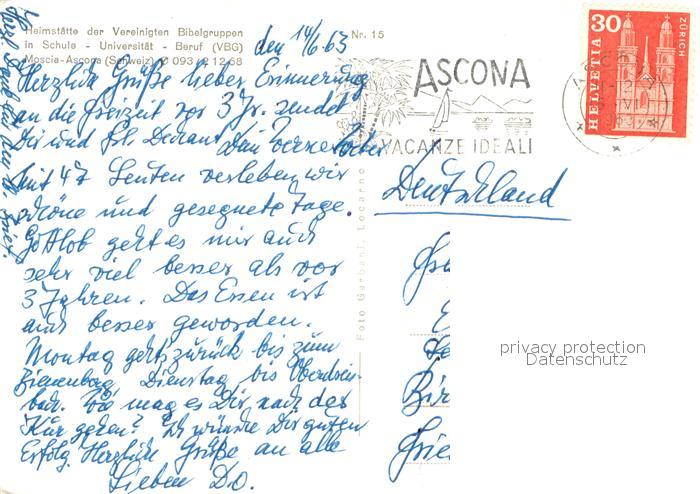 Heimstätte der Vereinigten Bibelgruppen
in Schule - Universität - Beruf (VBG)
Moscia-Ascona (Schweiz) Ø 093 2 12 68
Nr. 15
den 14/6.63
Herzlich Grüße lieber Erinnerung
an die Freizeit vor 3 Jr. sendet
Dir und Frl. Dein
Mit 47 Leuten verleben wir
schöne und gesegnete Tage.
Gottlob geht es mir auch
sehr viel besser als vor
3 Jahren. Das Essen ist
auch besser geworden.
Montag geht's zurück bis zum
Bienenberg, Dienstag bis
Wie mag es Dir nach der
Kur gehen? Ich wünsche Dir guten
Erfolg. Herzlich Grüße an alle
Lieben Do.
Herz. Dank für den Brief.
Foto Garbani, Locarno
ASCONA
VACANZE IDEALI
30
HELVETIA
ZÜRICH
Deutschland
privacy protection
Datenschutz